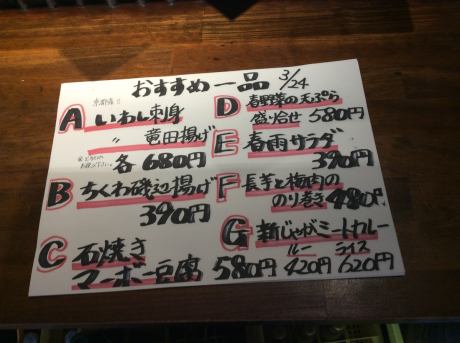 おすすめ一品 3/24
京都産!!
A いわし刺身
〃 竜田揚げ
各 680円
B ちくわ磯辺揚げ
390円
C 石焼き
マーボー豆腐 580円
D 春野菜の天ぷら
盛り合せ 580円
E 春雨サラダ
390円
F 長芋と梅肉の
のり巻き 480円
G 新じゃがミートカレー
ルー ライス
420円 620円